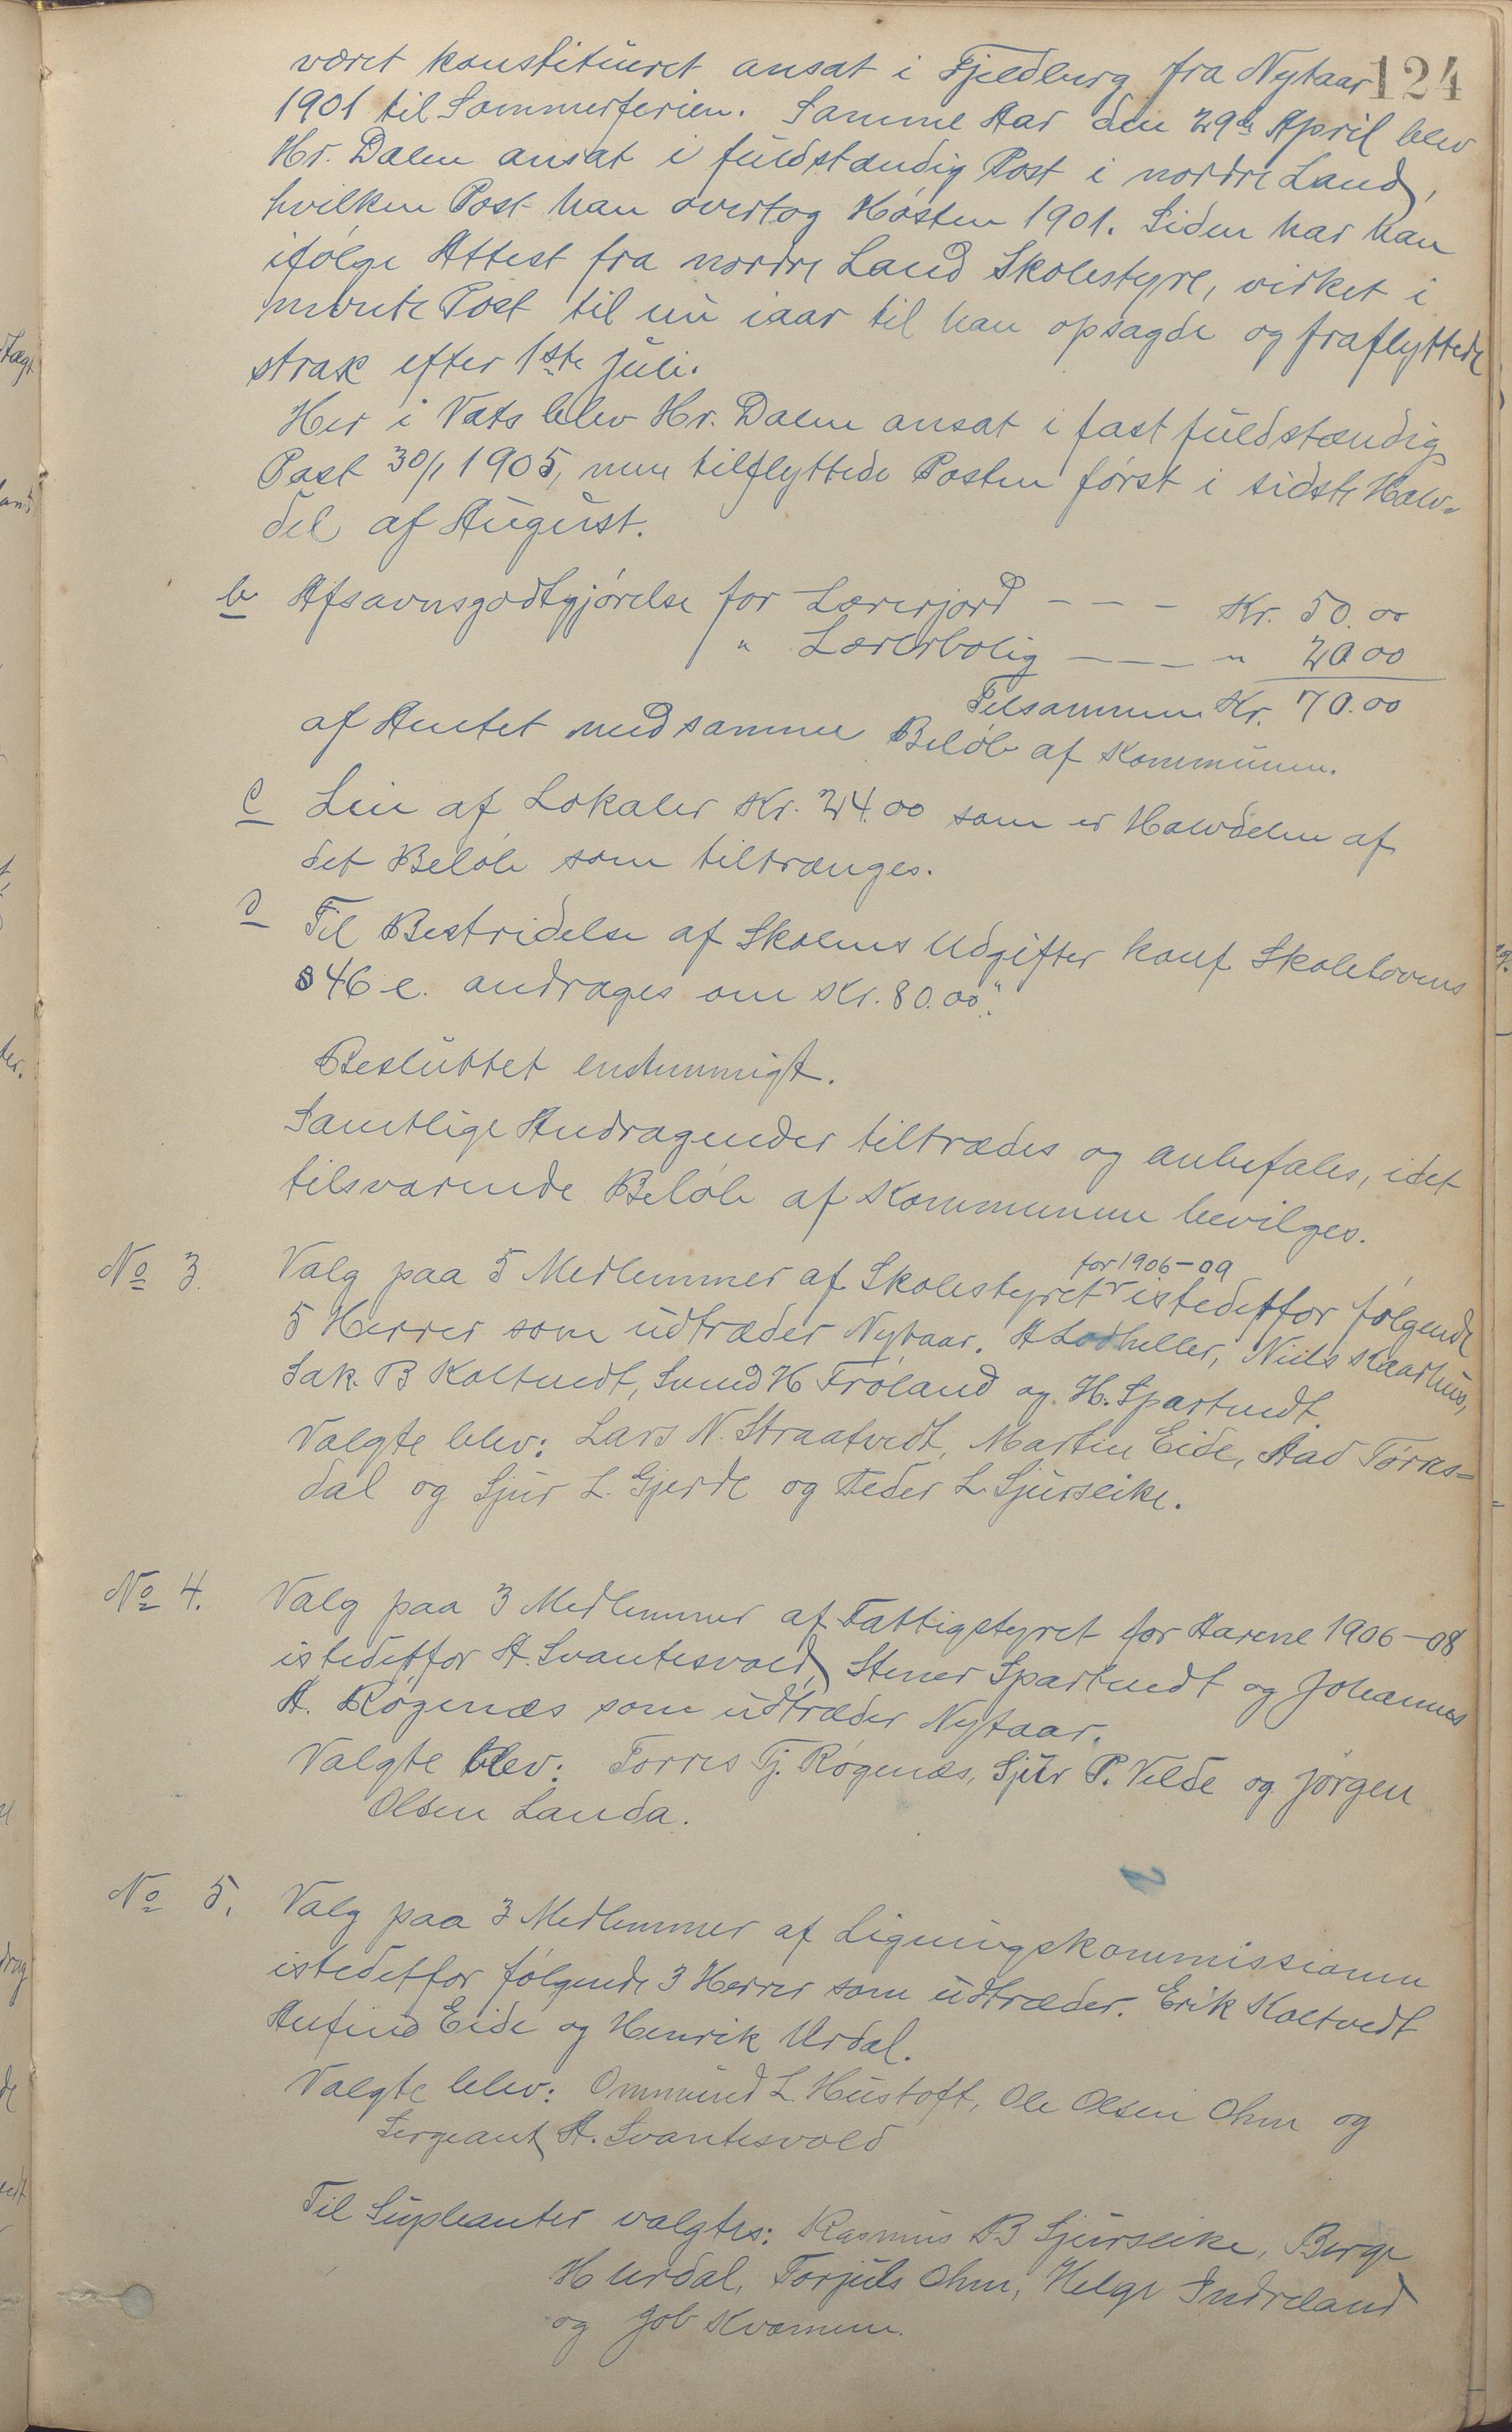 124
været konstitueret ansat i Fjeldberg fra Nytaar
1901 til Sommerferien. Samme Aar den 29de April blev
Hr. Dalen ansat i fuldstændig Post i nordre Land,
hvilken Post han overtog Høsten 1901. Siden har han
ifølge Attest fra nordre Land Skolestyre, virket i
nævnte Post til nu iaar til han opsagde og fraflyttede
strax efter 1ste Juli.
Her i Vats blev Hr. Dalen ansat i fast fuldstændig
Post 30/1 1905, men tilflyttede Posten først i sidste Halv-
del af August.
b Afsavnsgodtgjørelse for Lærerjord - - - Kr. 50.00
" Lærerbolig - - - " 20.00
Tilsammen Kr. 70.00
af Amtet med samme Beløb af Kommunen.
c Leie af Lokaler Kr. 24.00 som er Halvdelen af
det Beløb som tiltrænges.
d Til Bestridelse af Skolens Udgifter konf. Skolelovens
§ 46 e. andrages om Kr. 80.00."
Besluttet enstemmigt.
Samtlige Andragender tiltrædes og anbefales, idet
tilsvarende Beløb af Kommunen bevilges.
No 3. Valg paa 5 Medlemmer af Skolestyret for 1906-09 istedetfor følgende
5 Herrer som udtræder Nytaar. A Lodheller, Niels Kaarhus,
Sak. B Koltvedt, Svend H Frøland og H. Spartvedt.
Valgte blev: Lars N. Straatvedt, Martin Eide, Aad Tørres=
dal og Sjur L. Gjerde og Peder L. Sjurseike.
No 4. Valg paa 3 Medlemmer af Fattigstyret for Aarene 1906-08
istedetfor A. Svantesvold, Stener Spartvedt og Johannes
A. Røgenæs som udtræder Nytaar.
Valgte blev: Torres Tj. Røgenæs, Sjur P. Velde og Jørgen
Olsen Landa.
No 5. Valg paa 3 Medlemmer af Ligningskommissionen
istedetfor følgende 3 Herrer som udtræder. Erik Koltvedt
Anfind Eide og Henrik Urdal.
Valgte blev: Ommund L. Hustoft, Ole Olsen Ohm og
Sergeant A. Svantesvold
Til Supleanter valgtes: Rasmus B Sjurseike, Berge
H Urdal, Torjuls Ohm, Helge Indreland
og Job Kvamme.